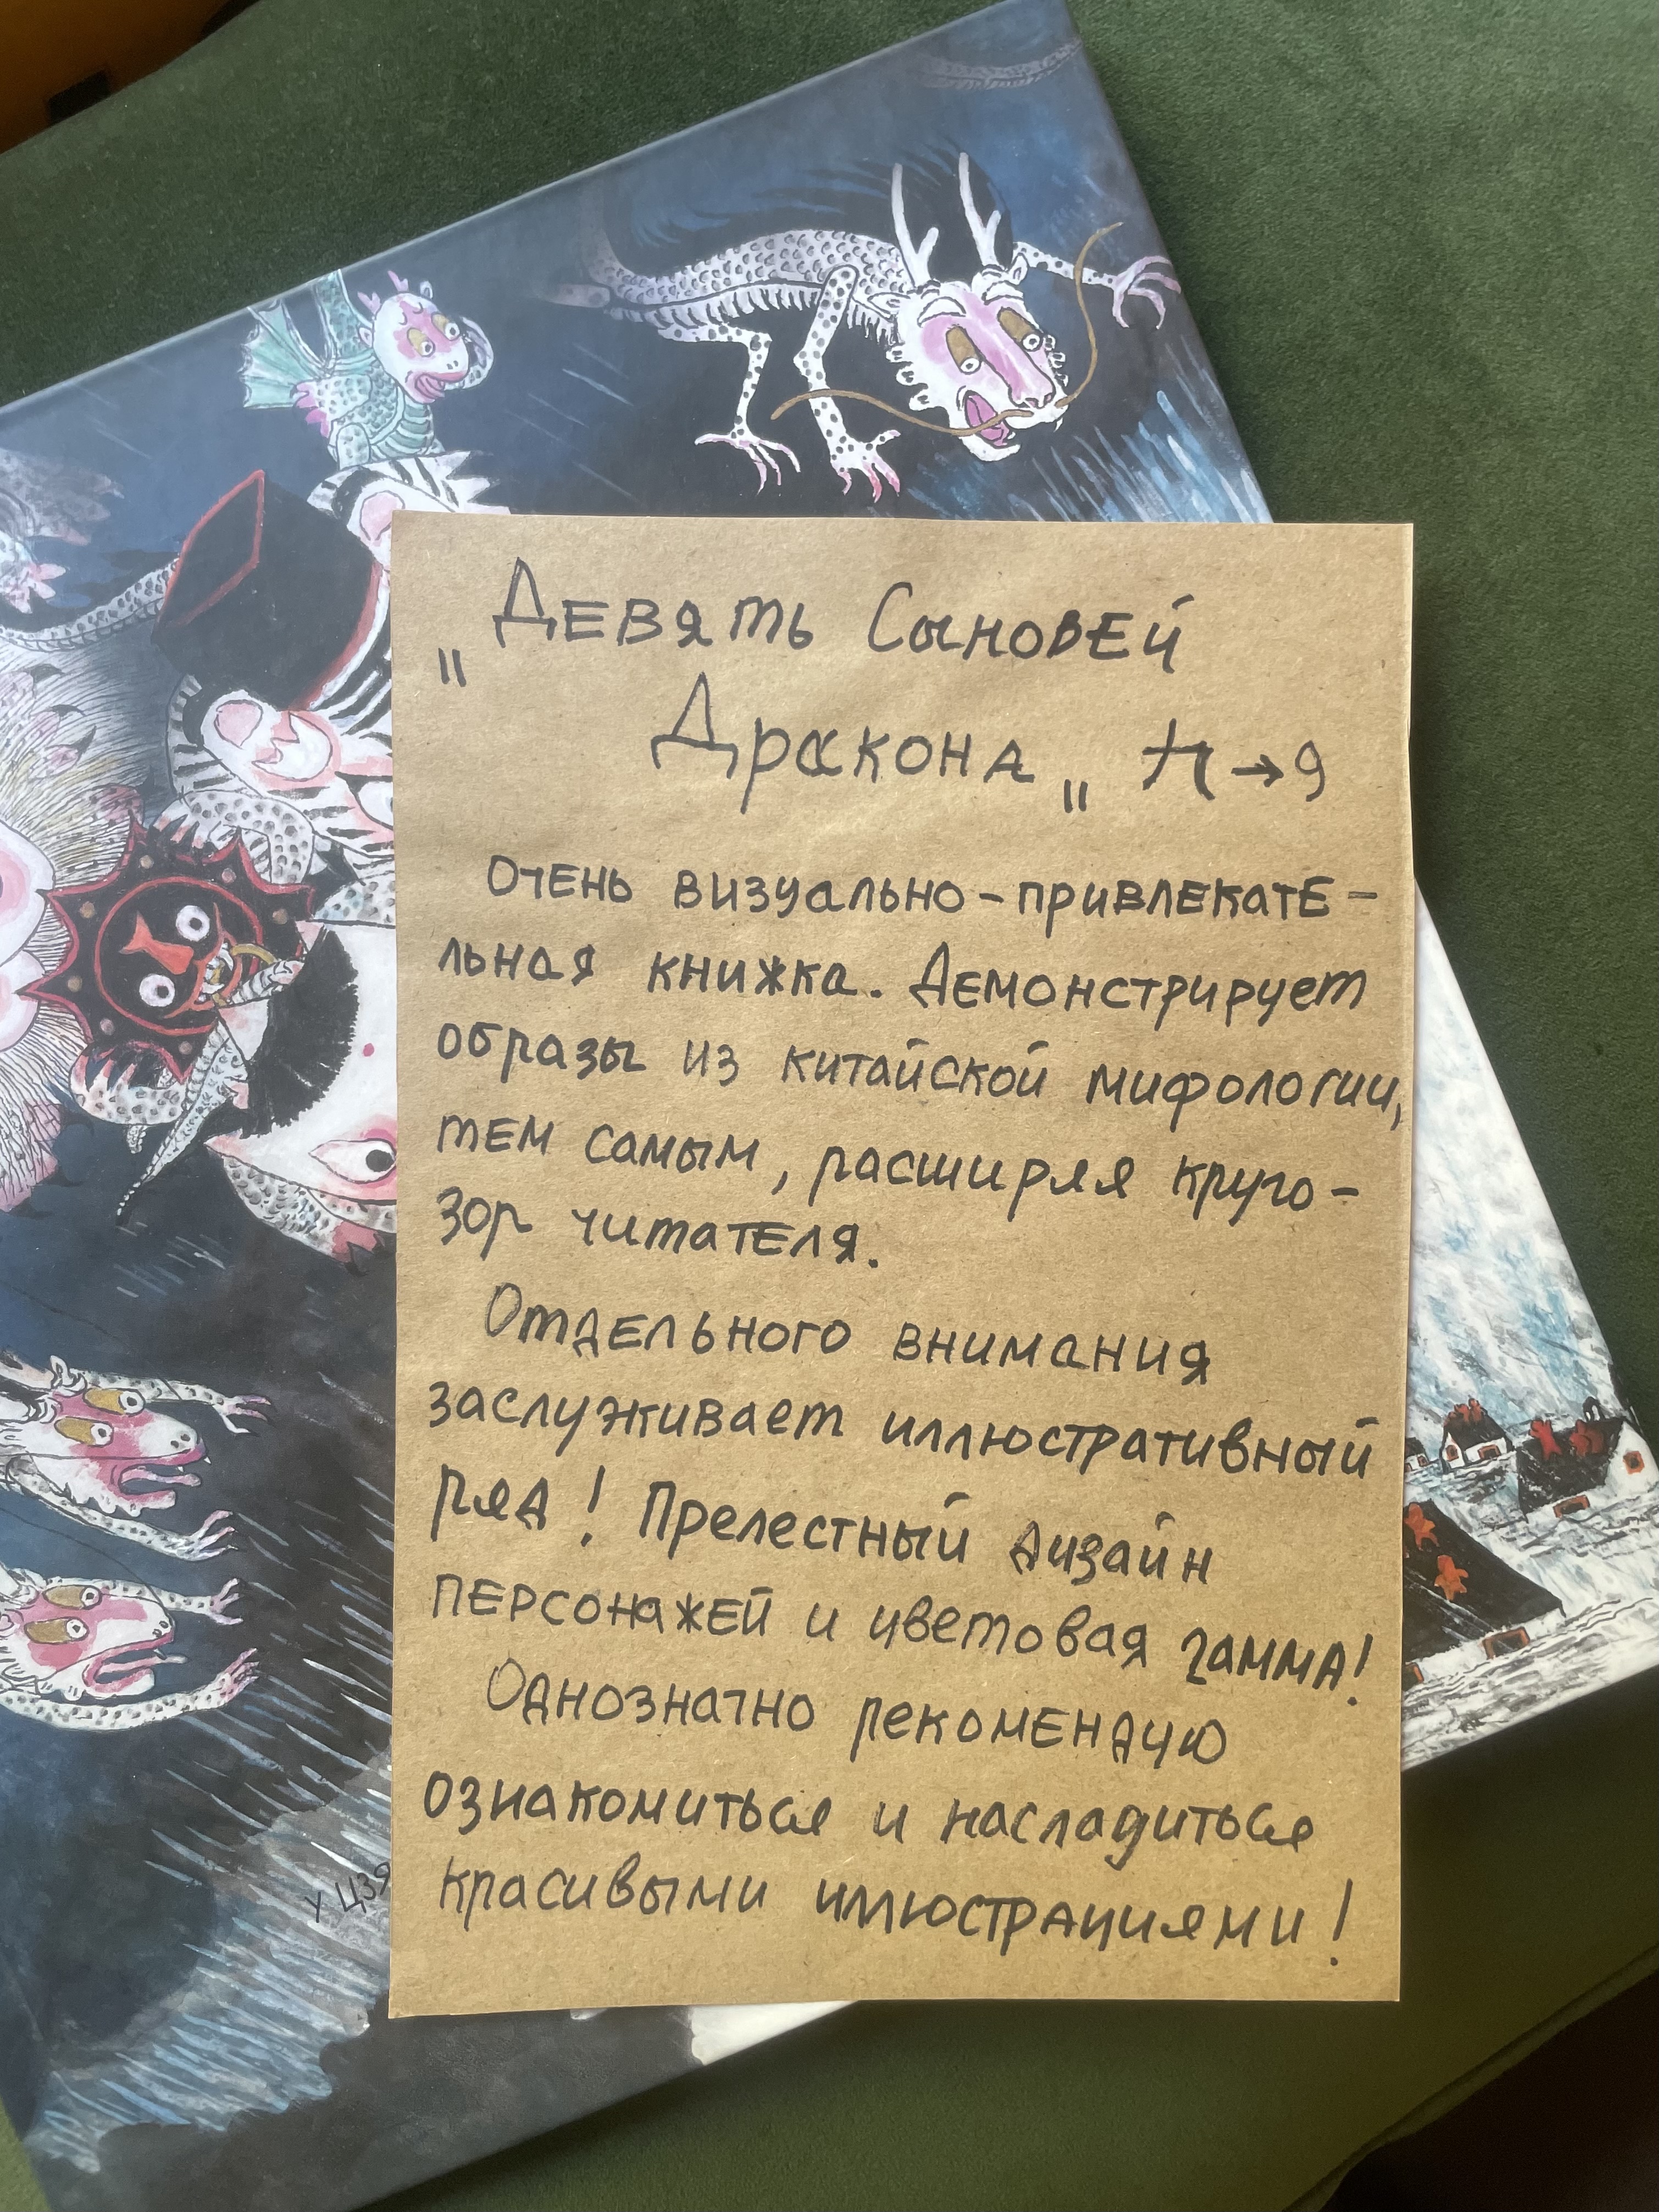 „Девять Сыновей
Дракона„九→9
Очень визуально-привлекате-
льная книжка. Демонстрирует
образы из китайской мифологии,
тем самым, расширяя круго-
зор читателя.
Отдельного внимания
заслуживает иллюстративный
ряд! Прелестный дизайн
персонажей и цветовая гамма!
Однозначно рекомендую
ознакомиться и насладиться
красивыми иллюстрациями!
У ЦЗЯ